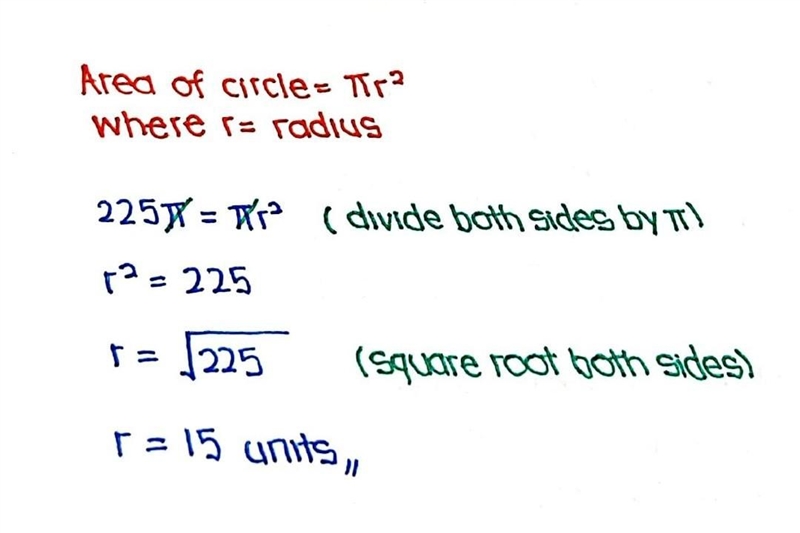 Area of circle = πr²
where r = radius
225π = πr² (divide both sides by π)
r² = 225
r = √225 (square root both sides)
r = 15 units,,